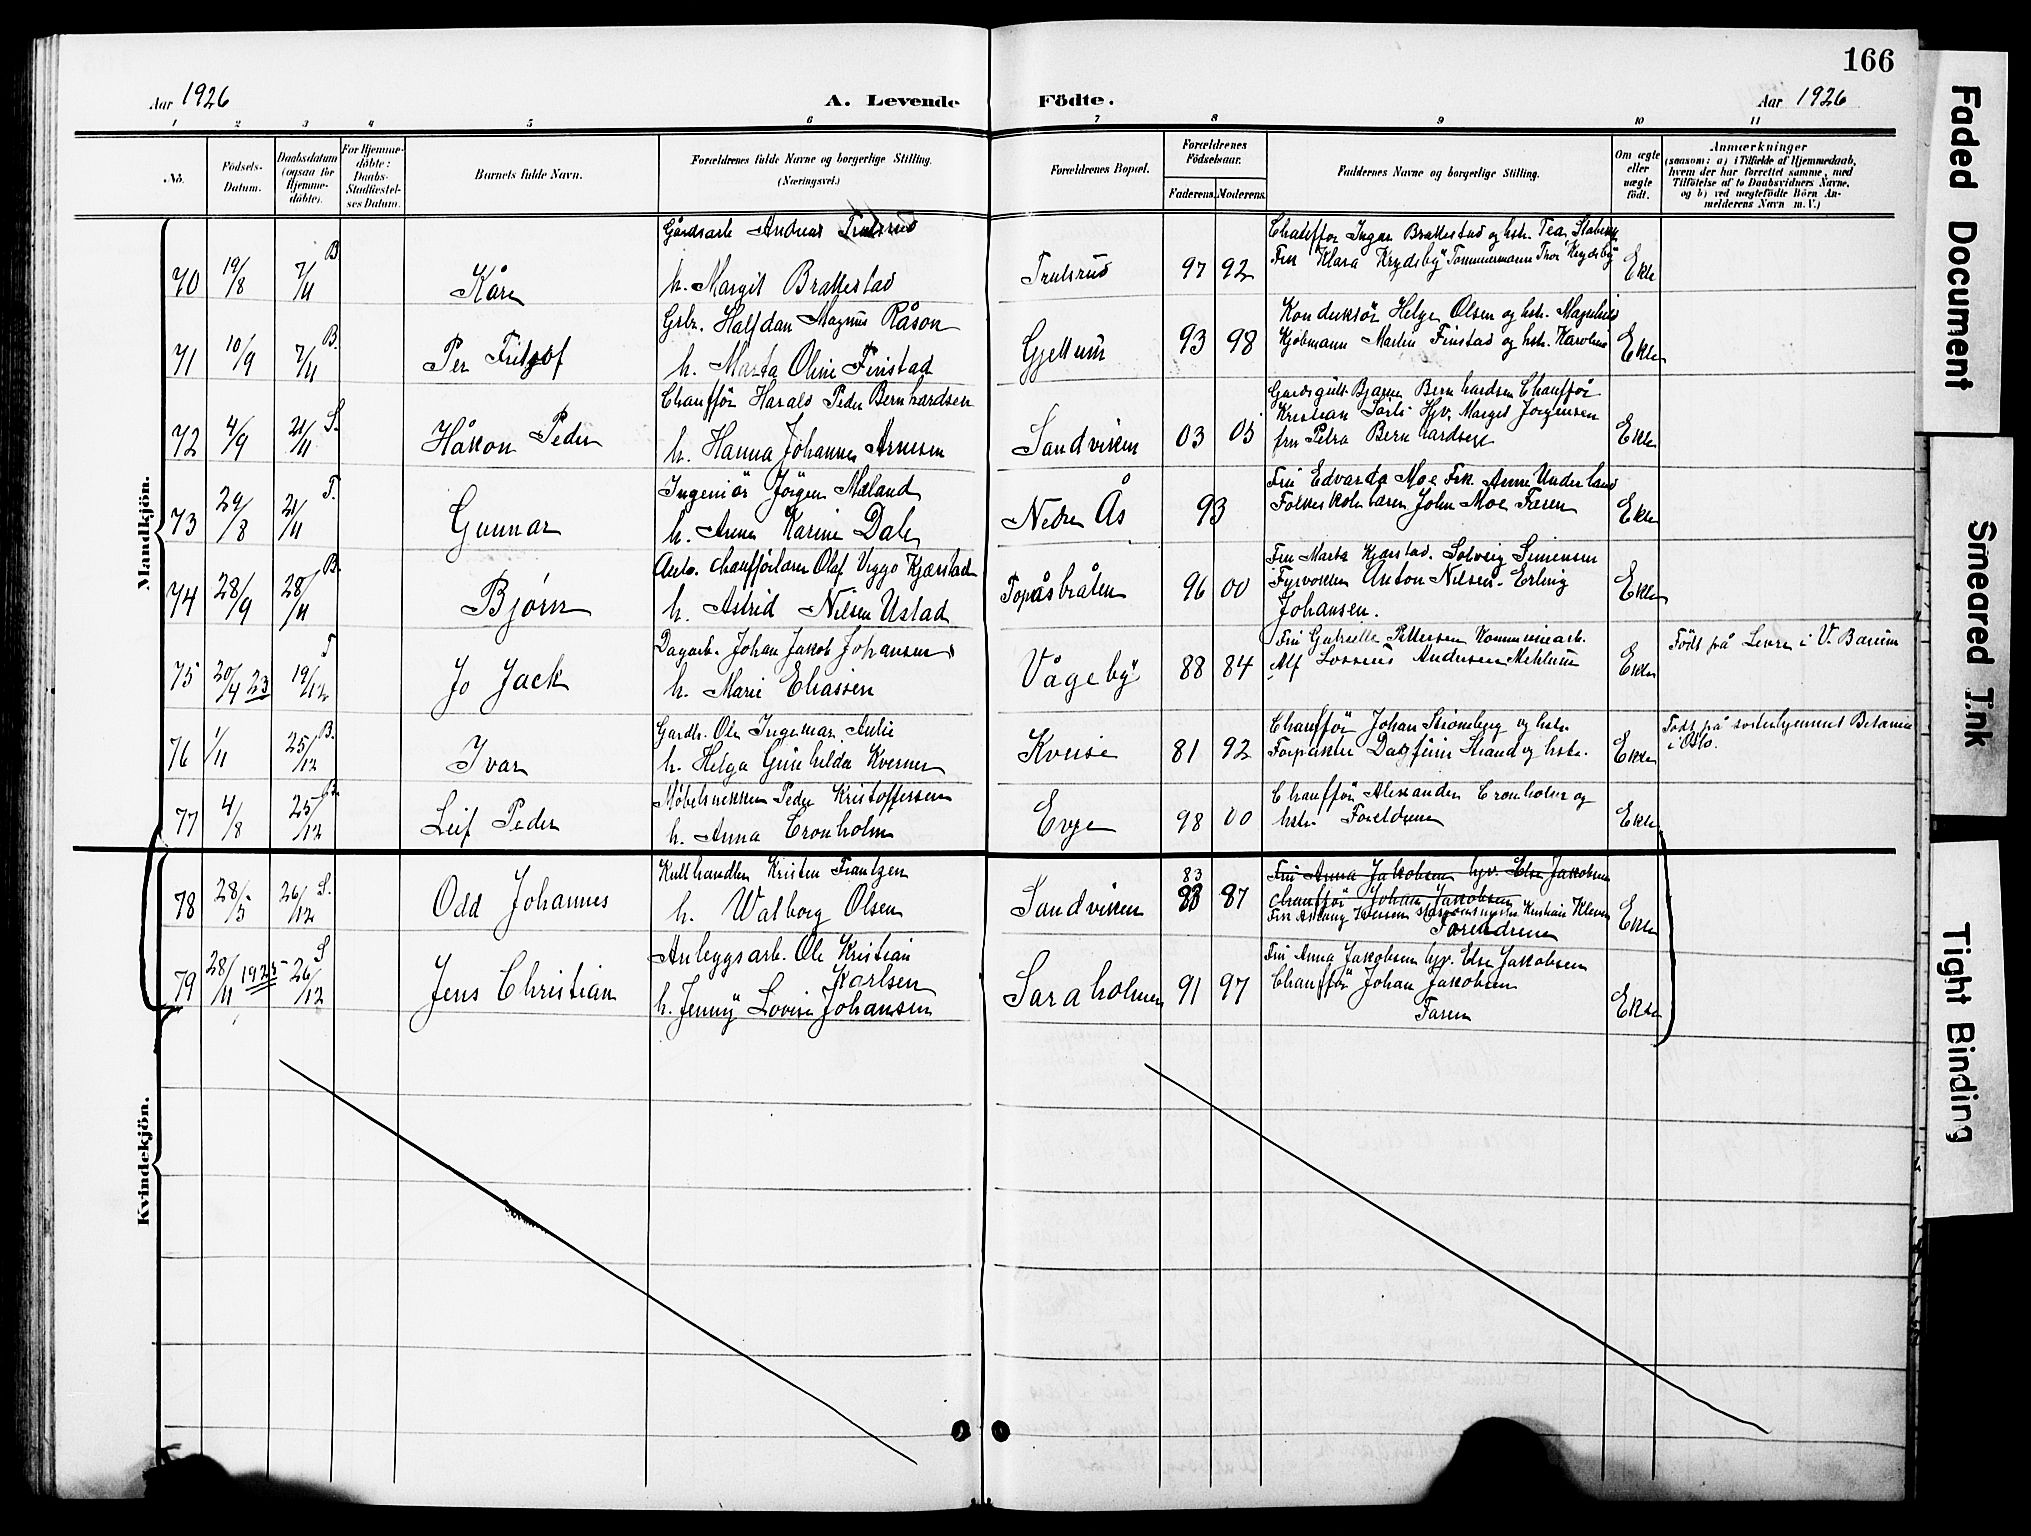 166
Aar 1926
A. Levende
Födte.
Aar 1926
1 2 3 4 5 6 7 8 8 9 10 11
No.
Födsels-
Datum.
Daabsdatum
(ogsaa for
Hjemme-
döbte).
For Hjemme-
döbte:
Daabs-
Stadfæstel-
ses Datum.
Barnets fulde Navn.
Forældrenes fulde Navne og borgerlige Stilling.
(Næringsvei.)
Forældrenes Bopæl.
Forældrenes
Födselsaar.
Faderens.
Moderens.
Faddernes Navne og borgerlige Stilling.
Om ægte
eller
uægte
födt.
Anmærkninger
(saasom: a) i Tilfælde af Hjemmedaab,
hvem der har forrettet samme, med
Tilföielse af to Daabsvidners Navne,
og b) ved uægtefödte Börn An-
melderens Navn m. V.)
Mandkjön.
70 19/8 7/11 B Kåre
Gårdsarb Andreas Trulsrud
h. Margit Brattestad
Trulsrud 97 92
Chauffør Ingar Brattestad og hstr. Tea
Fru Klara Krydsby Tømmermann Thor Krydsby
Ekte
71 10/9 7/11 B. Per Fritjof
Gsbr. Halfdan Magnus Råson
h. Marta Oline Finstad
Gjellum 93 98
Konduktør Helge Olsen og hstr.
Kjøbmann Martin Finstad og hstr. Karoline
Ekte
72 4/9 21/11 S. Håkon Peder
Chauffør Harald Peder Bernhardsen
h. Hanna Johannes Arnesen
Sandviken 03 05
Gardsgutt Bjarne Bernhardsen Chauffør
Kristian Hjv. Margit Jørgensen
fru Petra Bernhardsen
Ekte
73 29/8 21/11 T. Gunnar
Ingeniør Jørgen Mæland
h. Anna Karine Dale
Nedre Ås 93
Fru Edvarda Moe Frk. Anne Underland
Folkeskolelærer John Moe Faren
Ekte
74 28/9 28/11 B. Bjørn
Auto. chaufførlærer Olaf Viggo Kjærstad
h. Astrid Nilsen Ustad
Topåsbråten 96 00
Fru Marta Kjærstad. Solveig Simensen
Fyrvokter Anton Nilsen. Erling
Johansen.
Ekte
75 20/4 23 19/12 T Jo Jack
Dagarb. Johan Jakob Johansen
h. Marie Eliassen
Vågeby 88 84
Fru Gabrielle Pettersen Kommunearb.
Alf Andersen Mehlum
Ekte
Født på Levre i V. Bærum
76 1/11 25/12 B. Ivar
Gardbr. Ole Ingemar Aulie
h. Helga Gunhilda Kverner
Kveise 81 92
Chauffør Johan Strømberg og hstr.
Forpakter Dagfinn Strand og hstr.
Ekte
Født på søsterhjemmet Betania
i Oslo.
77 4/8 25/12 B. Leif Peder
Møbelsnekker Peder Kristoffersen
h. Anna Cronholm
Evje 98 00
Chauffør Alexander Cronholm og
hstr. Foreldrene
Ekte
78 28/5 26/12 S. Odd Johannes
Kullhandler Kristen Frantzen
h. Walborg Olsen
Sandviken 83 87
Fru Anna Jakobsen hjv. Else Jakobsen
chauffør Johan Jakobsen
Kristian Kleven
Foreldrene
Ekte
79 28/11 1925 26/12 S Jens Christian
Anleggsarb. Ole Kristian
Karlsen
h. Jenny Lovise Johansen
Saraholmen 91 97
Fru Anna Jakobsen hjv. Else Jakobsen
Chauffør Johan Jakobsen
Faren
Ekte
Kvindekjön.
Faded Document
Smeared Ink
Tight Binding